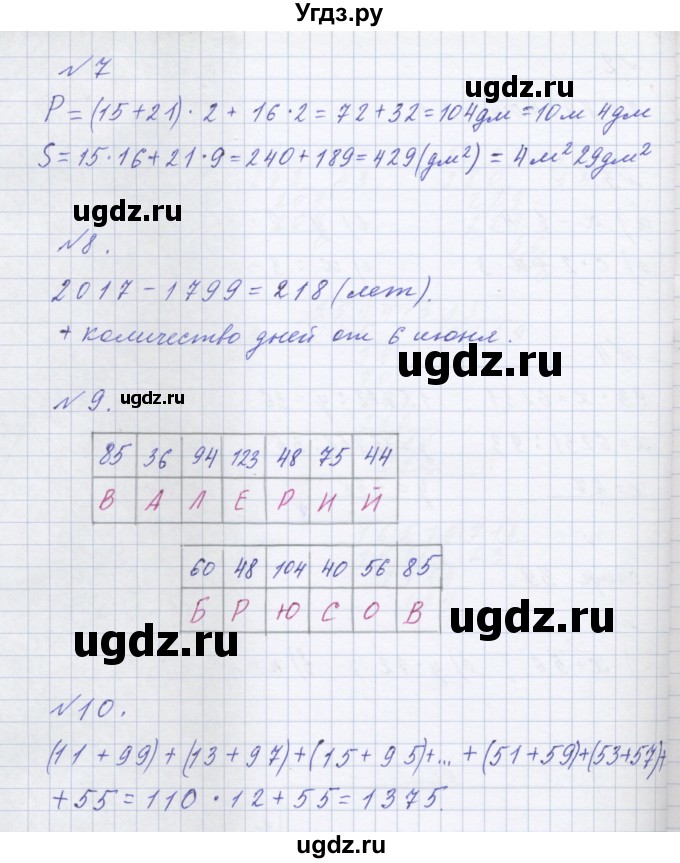 Угдз.ру
№7
P = (15 + 21) · 2 + 16 · 2 = 72 + 32 = 104 дм = 10 м 4 дм
S = 15 · 16 + 21 · 9 = 240 + 189 = 429 (дм²) = 4 м² 29 дм²
№8.
2017 - 1799 = 218 (лет).
+ количество дней от 6 июня.
№9.
85 36 94 123 48 75 44
В А Л Е Р И Й
60 48 104 40 56 85
Б Р Ю С О В
№10.
(11 + 99) + (13 + 97) + (15 + 95) + ... + (51 + 59) + (53 + 57) +
+ 55 = 110 · 12 + 55 = 1375.
ugdz.ru
ugdz.ru
ugdz.ru
ugdz.ru
ugdz.ru
ugdz.ru
ugdz.ru
ugdz.ru